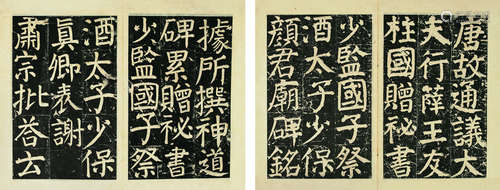 唐故通議大
夫行薛王友
柱國贈秘書
少監國子祭
酒太子少保
顏君廟碑銘
據所撰神道
碑累贈祕書
少監國子祭
酒太子少保
真卿表謝
肅宗批荅云